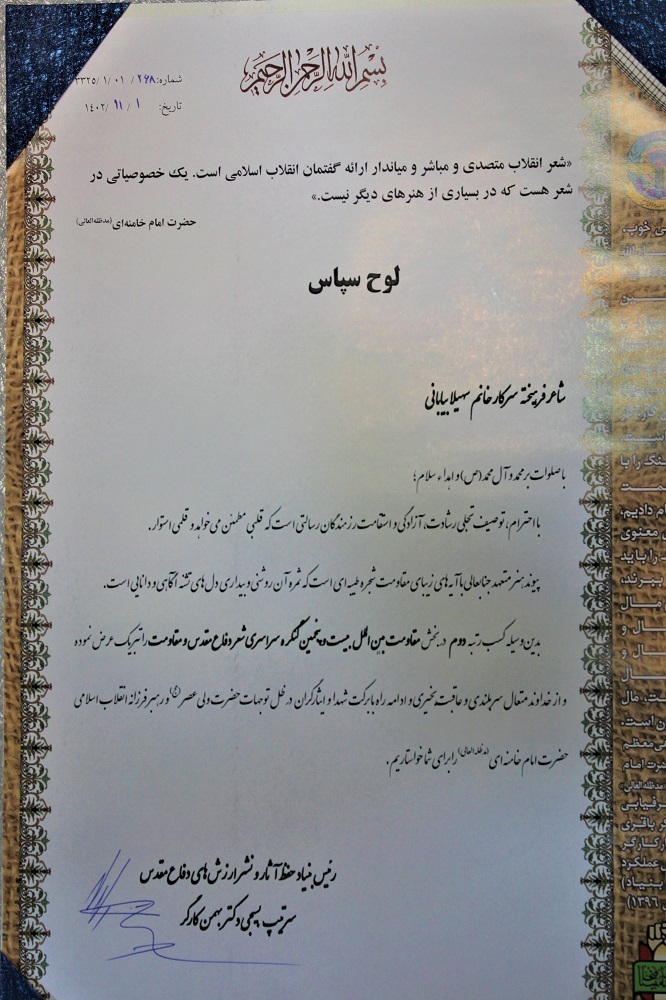 بسم الله الرحمن الرحیم
شماره: ۲۶۸ /۰۱ /۱ /۳۳۲۵
تاریخ: ۱ / ۱۱ / ۱۴۰۲
«شعر انقلاب متصدی و مباشر و میاندار ارائه گفتمان انقلاب اسلامی است. یک خصوصیاتی در
شعر هست که در بسیاری از هنرهای دیگر نیست.»
حضرت امام خامنه‌ای (مدظله‌العالی)
لوح سپاس
شاعر فرهیخته سرکار خانم سهیلا بیابانی
با صلوات بر محمد و آل محمد (ص) و اهداء سلام؛
با احترام، توصیف تجلی رشادت، آزادگی و استقامت رزمندگان رسالتی است که قلبی مطمئن می‌خواهد و قلمی استوار.
پیوند هنر متعهد جنابعالی با آیه‌های زیبای مقاومت شجره طیبه‌ای است که ثمره آن روشنی و بیداری دل‌های تشنه آگاهی و دانایی است.
بدین وسیله کسب رتبه دوم در بخش مقاومت بین الملل بیست و پنجمین کنگره سراسری شعر دفاع مقدس و مقاومت را تبریک عرض نموده
و از خداوند متعال سربلندی و عاقبت بخیری و ادامه راه بابرکت شهدا و ایثارگران در ظل توجهات حضرت ولی عصر (عج) و رهبر فرزانه انقلاب اسلامی
حضرت امام خامنه‌ای (مدظله العالی) را برای شما خواستاریم.
رئیس بنیاد حفظ آثار و نشر ارزش‌های دفاع مقدس
سرتیپ بسیجی دکتر بهمن کارگر
ی خوب،
سنگ را با
م دادیم؛
معنوی
را باید
ببرند،
مال
مال
ن است.
ی معظم
ضرت امام
(مدظله العالی)»
رفیابی
ر باقری
ر کارگر
عملکرد
بنیاد)
۱۳۹۶)